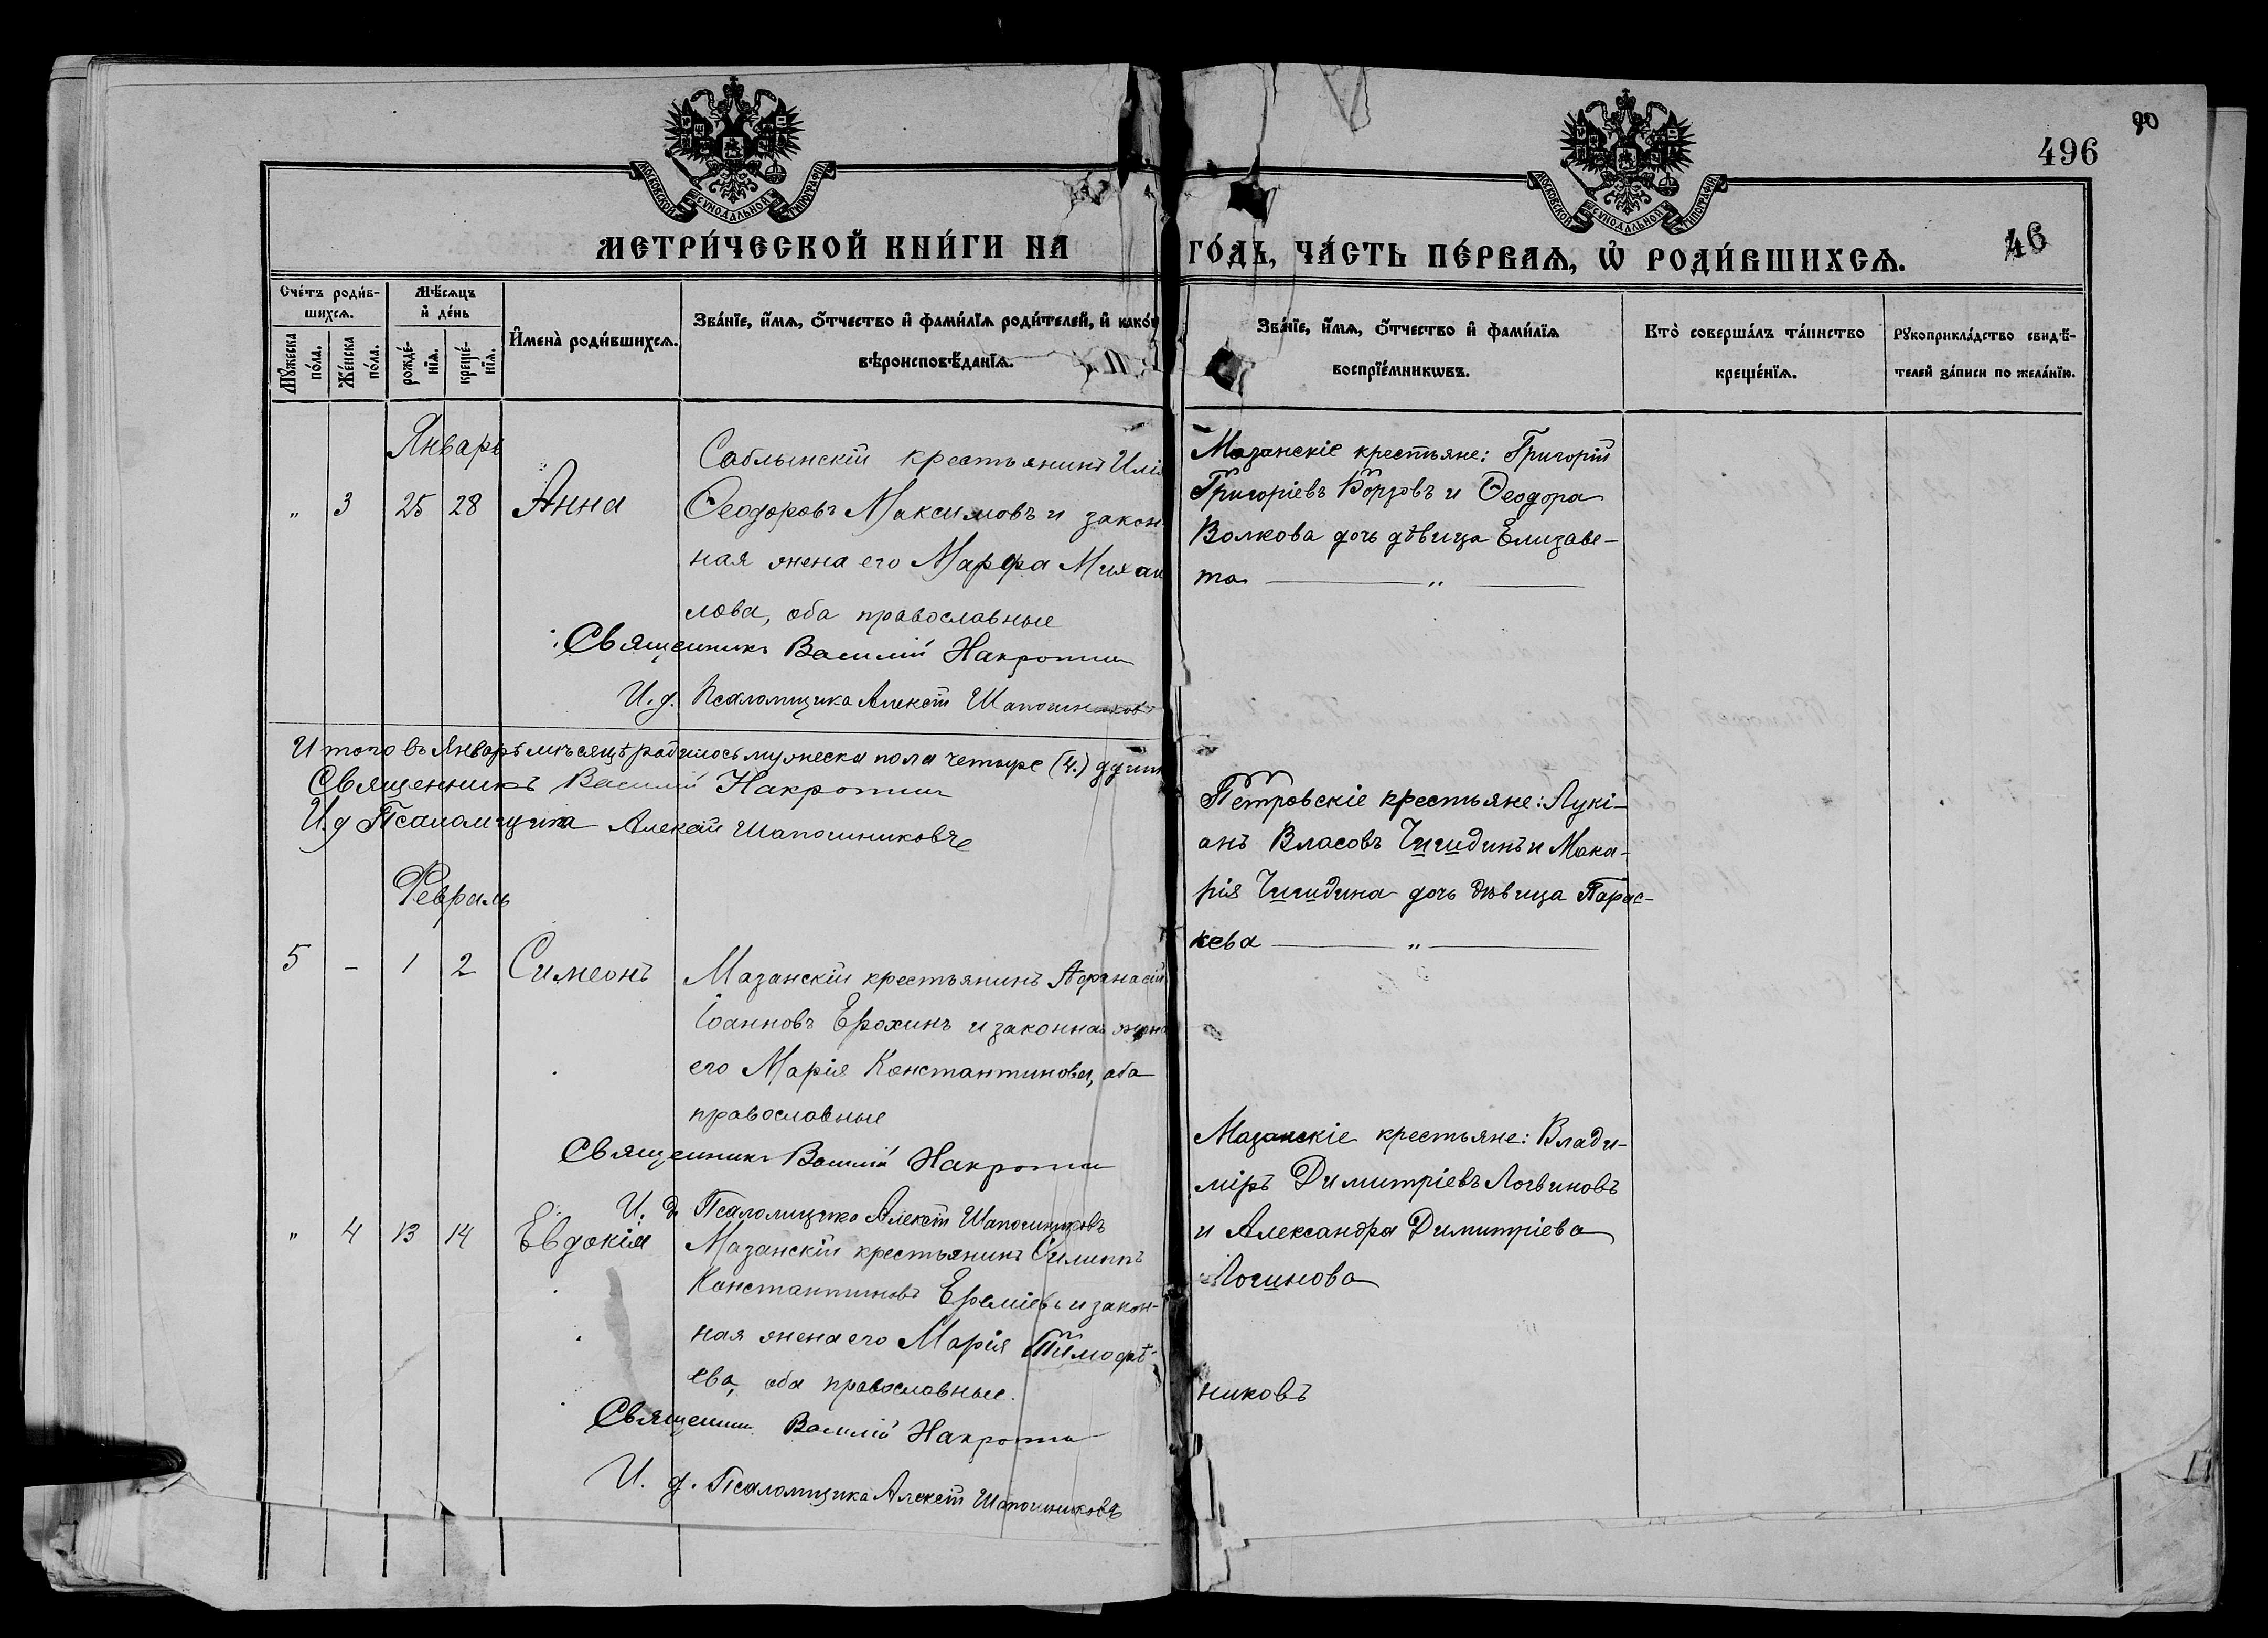 90
496
46
МОСКОВСКОЙ СѴНОДАЛЬНОЙ ТИПОГРАФІИ
МОСКОВСКОЙ СѴНОДАЛЬНОЙ ТИПОГРАФІИ
МЕТРИ́ЧЕСКОЙ КНИ́ГИ НА
ГО́ДЪ, ЧА́СТЬ ПЕ́РВАѦ, Ѡ҆ РОДИ́ВШИХСѦ.
Сче́тъ роди́в-
шихсѧ.
Мꙋ́жеска по́ла.
Же́нска по́ла.
Мѣ́сѧцъ
и҆ де́нь
рожде́-
нїѧ.
креще́-
нїѧ.
И҆мена̀ роди́вшихсѧ.
Зва́нїе, и҆́мѧ, ѻ҆́тчество и҆ фами́лїѧ роди́телей, и҆ како́й
вѣроисповѣ́данїѧ.
Зва́нїе, и҆́мѧ, ѻ҆́тчество и҆ фами́лїѧ
воспрїе́мникѡвъ.
Кто̀ соверша́лъ та́инство
креще́нїѧ.
Рꙋкоприкла́дство свидѣ́-
телей за́писи по жела́нїю.
Январь
„ 3 25 28 Анна
Саблынскій крестьянинъ Илія
Ѳеодоровъ Максимовъ и закон
ная жена его Марфа Михаи
лова, оба православные
Священникъ Василій Накропин
И. д. Псаломщика Алексѣй Шапошников
Мазанскіе крестьяне: Григорій
Григоріевъ Борзовъ и Ѳеодора
Волкова дочь дѣвица Елизаве-
та „
Итого въ Январѣ мѣсяцѣ родилось мужеска пола четыре (4.) души
Священникъ Василій Накропин
И. д Псаломщика Алексѣй Шапошниковъ
Февраль
5 - 1 2 Симеонъ
Мазанскій крестьянинъ Афанасій
Іоанновъ Ерохинъ и законная жена
его Марія Константинова, оба
православные
Священникъ Василій Накропин
И. д. Псаломщика Алексѣй Шапошниковъ
Петровскіе крестьяне: Лукі-
анъ Власовъ Чишдинъ и Мака-
рія Чишдина дочь дѣвица Парас-
кева „
„ 4 13 14 Евдокія
Мазанскій крестьянинъ Филиппъ
Константиновъ Ереміевъ и закон-
ная жена его Марія Тимофѣ-
ева, оба православные.
Священник Василій Накропин
И. д. Псаломщика Алексѣй Шапошниковъ
Мазанскіе крестьяне: Влади-
міръ Димитріевъ Логвиновъ
и Александра Димитріева
Логинова
никовъ